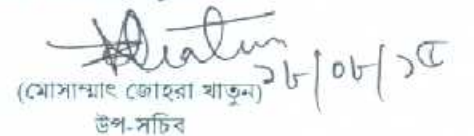 ১৮/০৮/১৫
(মোসাম্মাৎ জোহরা খাতুন)
উপ-সচিব